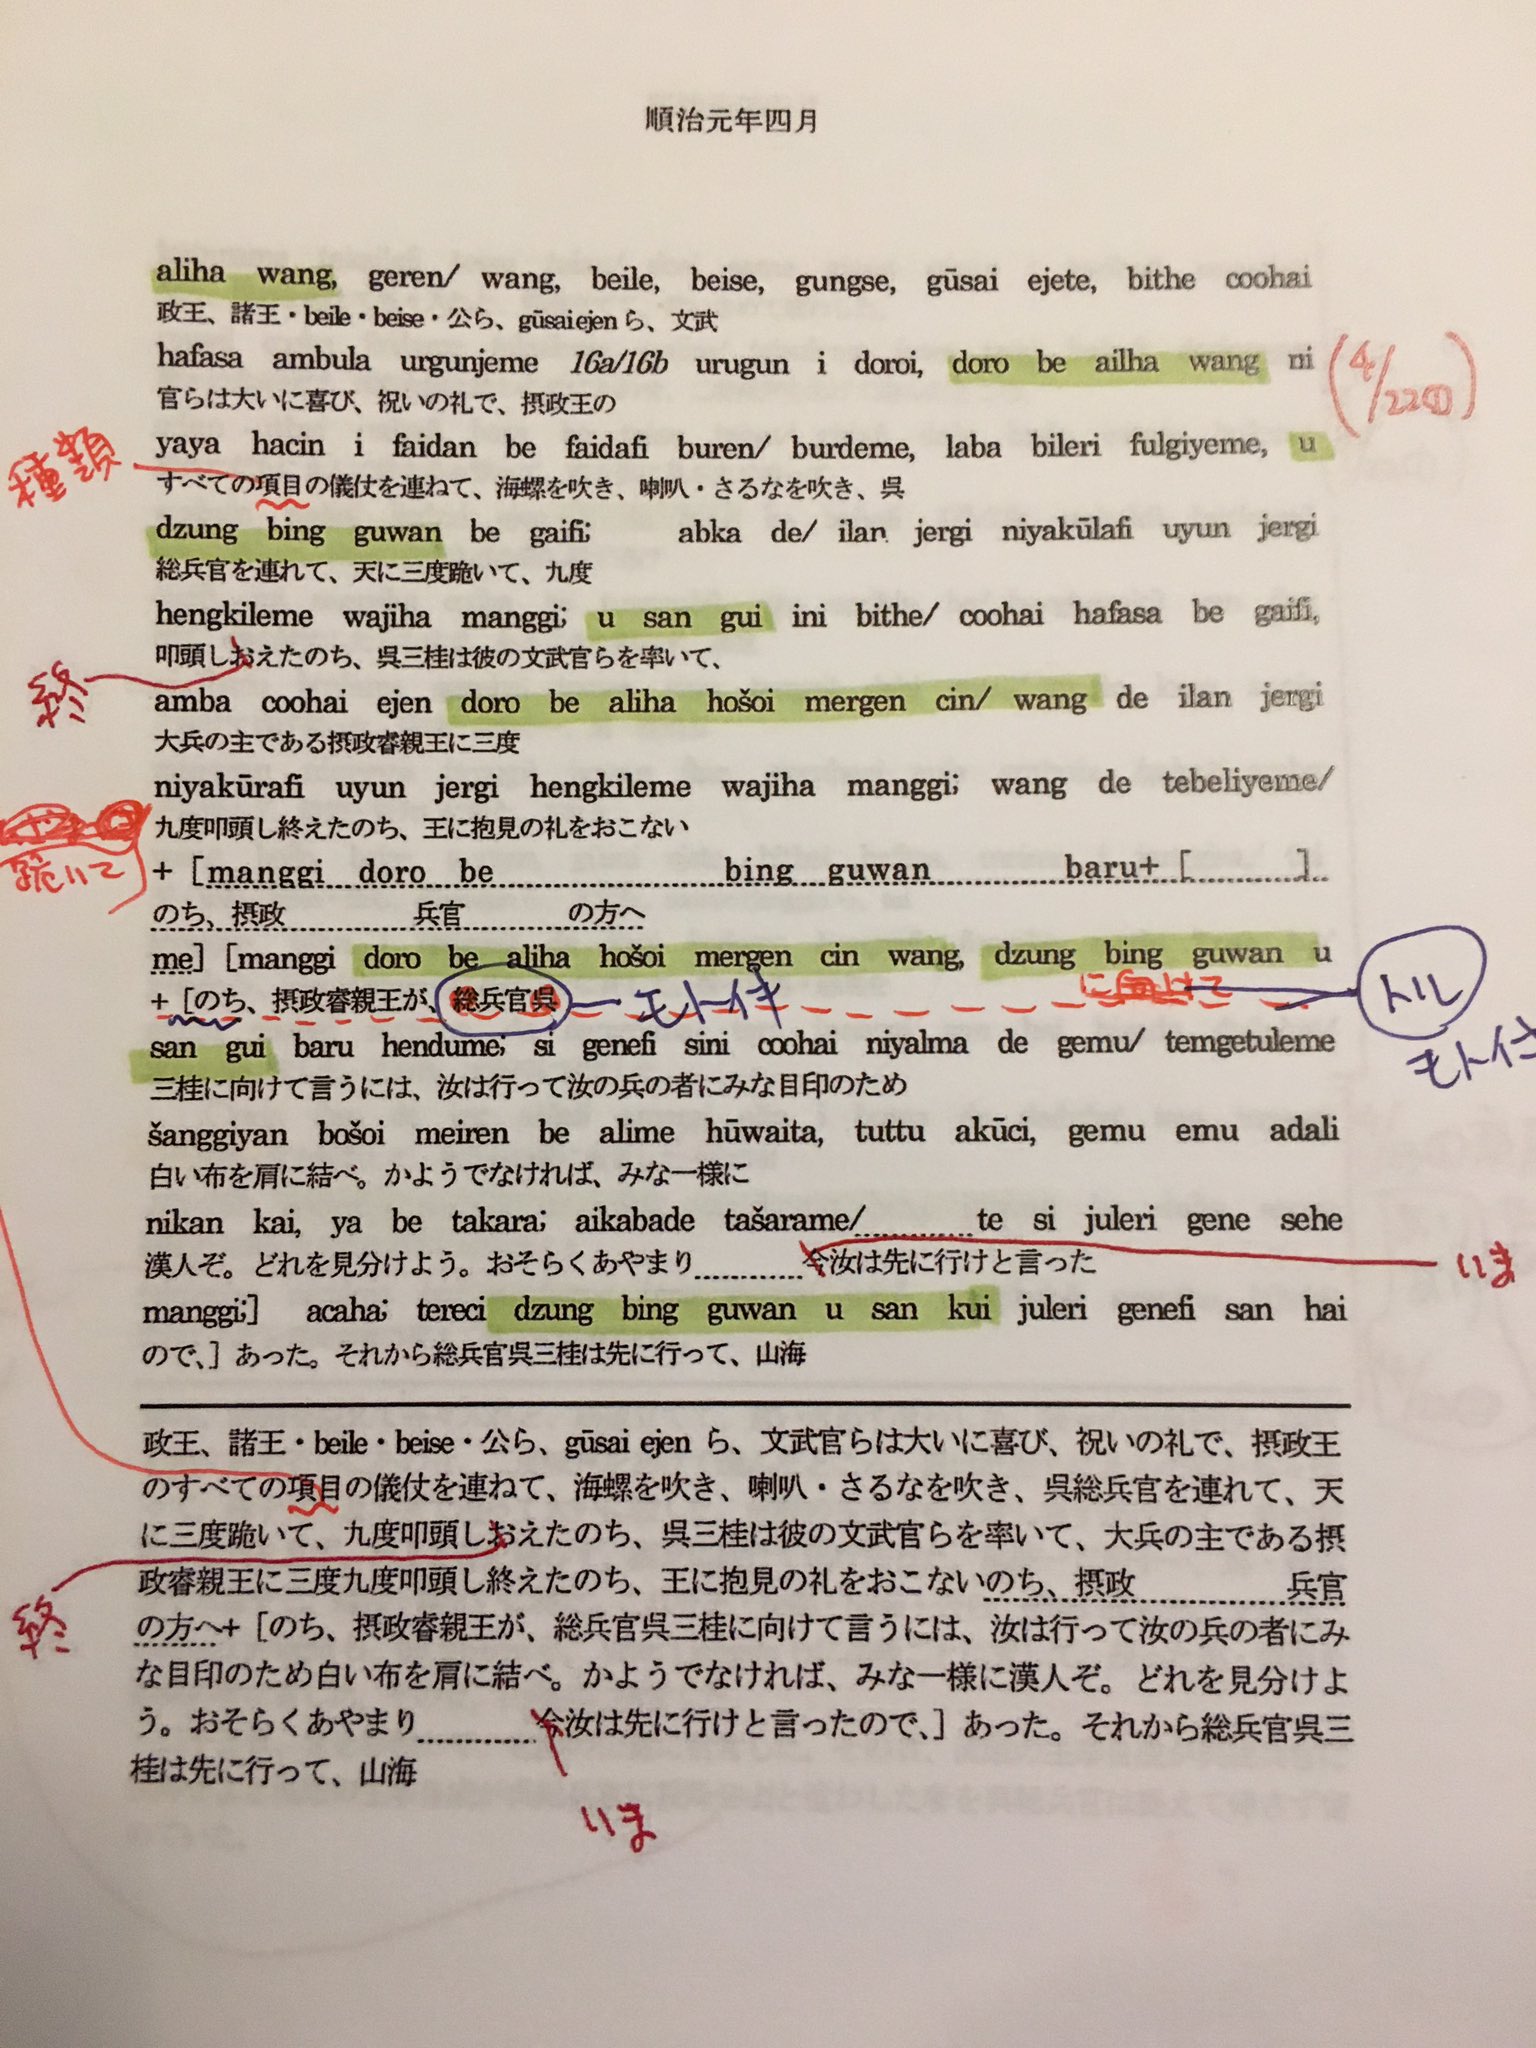 順治元年四月
aliha wang, geren/ wang, beile, beise, gungse, gūsai ejete, bithe coohai
政王、諸王・beile・beise・公ら、gūsai ejen ら、文武
hafasa ambula urgunjeme 16a/16b urugun i doroi, doro be ailha wang ni
(4/22①)
官らは大いに喜び、祝いの礼で、摂政王の
yaya hacin i faidan be faidafi buren/ burdeme, laba bileri fulgiyeme, u
種類
すべての項目の儀仗を連ねて、海螺を吹き、喇叭・さるなを吹き、呉
dzung bing guwan be gaifi; abka de/ ilan jergi niyakūlafi uyun jergi
総兵官を連れて、天に三度跪いて、九度
hengkileme wajiha manggi; u san gui ini bithe/ coohai hafasa be gaifi,
叩頭しおえたのち、呉三桂は彼の文武官らを率いて、
終
amba coohai ejen doro be aliha hošoi mergen cin/ wang de ilan jergi
大兵の主である摂政睿親王に三度
niyakūrafi uyun jergi hengkileme wajiha manggi; wang de tebeliyeme/
九度叩頭し終えたのち、王に抱見の礼をおこない
跪いて
+ [manggi doro be bing guwan baru+ [ ]
のち、摂政 兵官 の方へ
me] [manggi doro be aliha hošoi mergen cin wang, dzung bing guwan u
+ [のち、摂政睿親王が、総兵官呉
モト付き
トル
モト付き
san gui baru hendume; si genefi sini coohai niyalma de gemu/ temgetuleme
三桂に向けて言うには、汝は行って汝の兵の者にみな目印のため
šanggiyan bošoi meiren be alime hūwaita, tuttu akūci, gemu emu adali
白い布を肩に結べ。かようでなければ、みな一様に
nikan kai, ya be takara; aikabade tašarame/ te si juleri gene sehe
漢人ぞ。どれを見分けよう。おそらくあやまり 今汝は先に行けと言った
いま
manggi;] acaha; tereci dzung bing guwan u san kui juleri genefi san hai
ので、] あった。それから総兵官呉三桂は先に行って、山海
政王、諸王・beile・beise・公ら、gūsai ejen ら、文武官らは大いに喜び、祝いの礼で、摂政王
のすべての項目の儀仗を連ねて、海螺を吹き、喇叭・さるなを吹き、呉総兵官を連れて、天
に三度跪いて、九度叩頭しおえたのち、呉三桂は彼の文武官らを率いて、大兵の主である摂
政睿親王に三度九度叩頭し終えたのち、王に抱見の礼をおこないのち、摂政 兵官
終
の方へ+ [のち、摂政睿親王が、総兵官呉三桂に向けて言うには、汝は行って汝の兵の者にみ
な目印のため白い布を肩に結べ。かようでなければ、みな一様に漢人ぞ。どれを見分けよ
う。おそらくあやまり 今汝は先に行けと言ったので、] あった。それから総兵官呉三
桂は先に行って、山海
いま